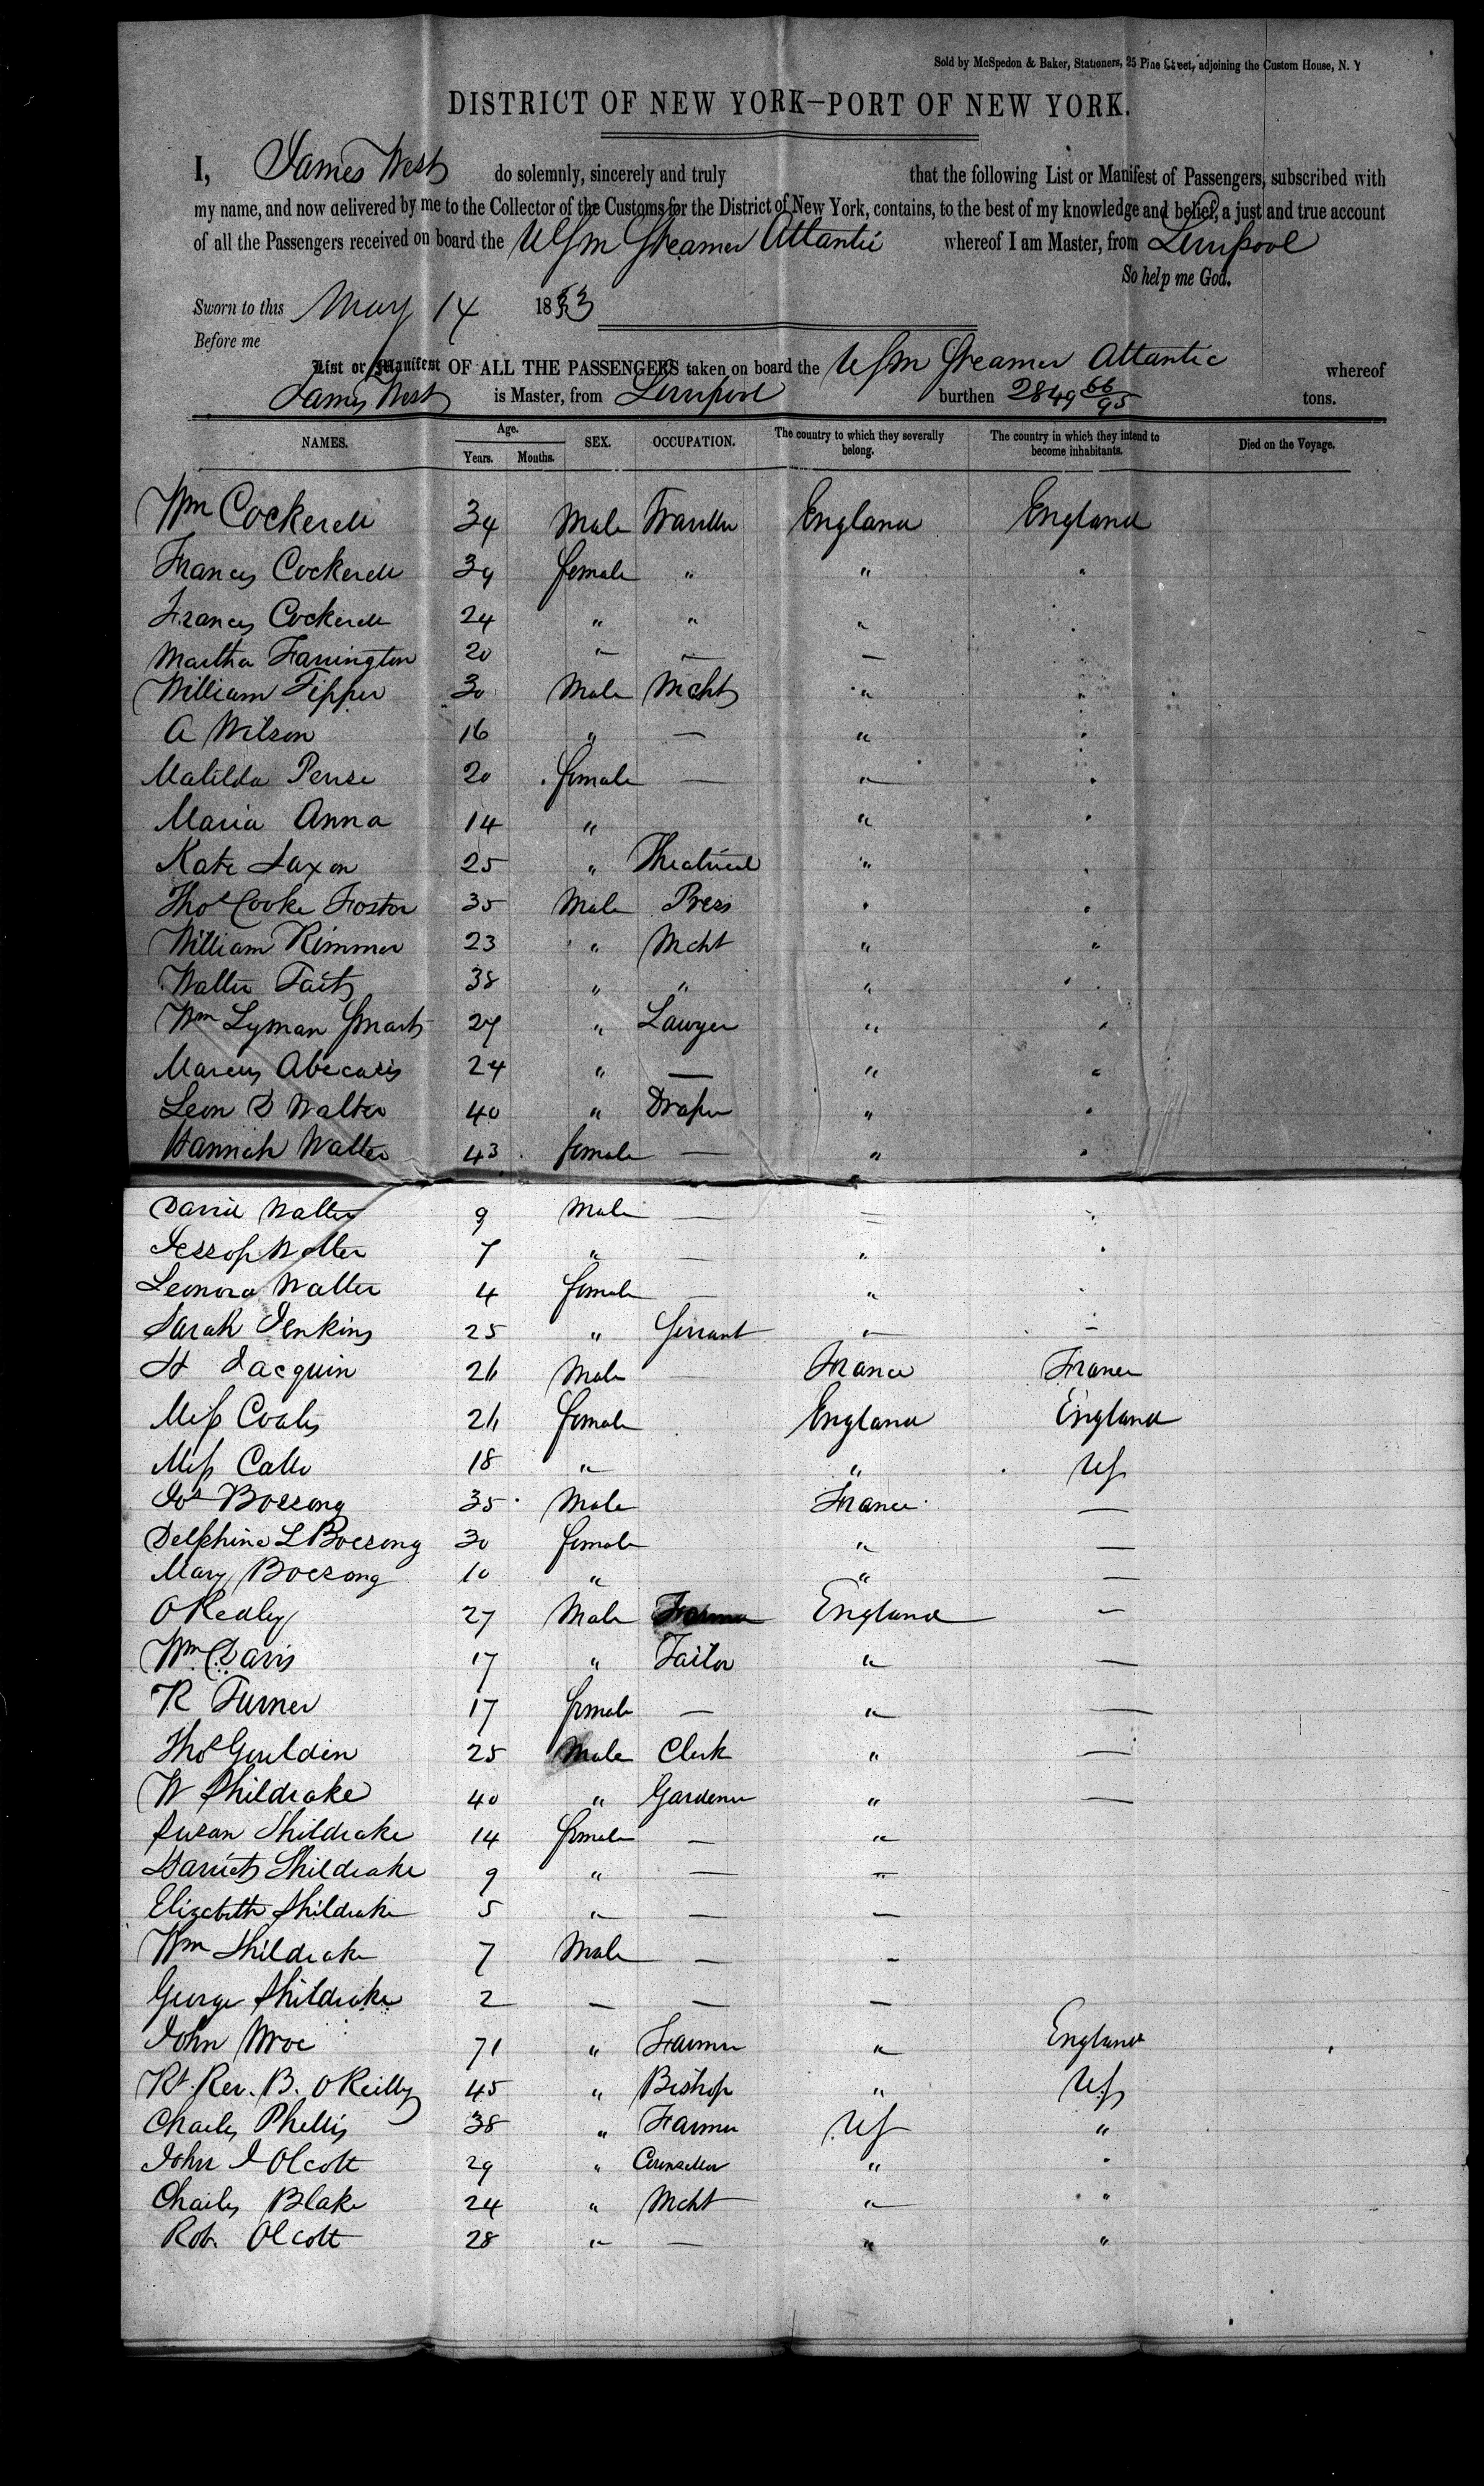 Sold by McSpedon & Baker, Stationers, 25 Pine Street, adjoining the Custom House, N. Y
DISTRICT OF NEW YORK—PORT OF NEW YORK.
I, James West do solemnly, sincerely and truly that the following List or Manifest of Passengers, subscribed with
my name, and now delivered by me to the Collector of the Customs for the District of New York, contains, to the best of my knowledge and belief, a just and true account
of all the Passengers received on board the USM Steamer Atlantic whereof I am Master, from Liverpool
So help me God.
Sworn to this May 14 1853
Before me
List or Manifest OF ALL THE PASSENGERS taken on board the USM Steamer Atlantic whereof
James West is Master, from Liverpool burthen 2849 66/95 tons.
NAMES. Age. Years. Months. SEX. OCCUPATION. The country to which they severally belong. The country in which they intend to become inhabitants. Died on the Voyage.
Wm Cockerell 34 Male England England
Frances Cockerell 39 female " " "
Frances Cockerell 24 " " "
Martha Farrington 20 " — —
William Tipper 30 Male Mcht " "
A Wilson 16 " — " "
Matilda 20 female — "
Maria Anna 14 " "
Kate Saxon 25 " Theatrical "
Thos Cooke Foster 35 Male Press " "
William Rimmer 23 " Mcht " "
Walter Tait 38 " " " "
Wm Lyman Smart 27 " Lawyer " "
Marcus Abecasis 24 " — " "
Leon D Walter 40 " Draper " "
Hannah Walter 43 female — " "
David Walter 9 Male — "
Jessop Walter 7 " — "
Leonora Walter 4 female — "
Sarah Jenkins 25 " Servant " —
H Jacquin 26 Male — France France
Miss Coates 26 female England England
Miss 18 " " US
Jos Boesong 35 Male France —
Delphine L Boesong 30 female " —
Mary Boesong 10 " " —
O Redley 27 Male Farmer England —
Wm Davis 17 " Tailor " —
R Turner 17 female — " —
Thos Gouldin 25 Male Clerk " —
W Shildrake 40 " Gardener " —
Susan Shildrake 14 female — "
Harriet Shildrake 9 " — "
Elizabeth Shildrake 5 " — —
Wm Shildrake 7 Male — —
George Shildrake 2 — — —
John Wroe 71 " Farmer " England
Rt. Rev. B. O Reilly 45 " Bishop " US
Charles Phellis 38 " Farmer US "
John J Olcott 29 " Counsellor " "
Charles Blake 24 " Mcht " "
Rob. Olcott 28 " — " "